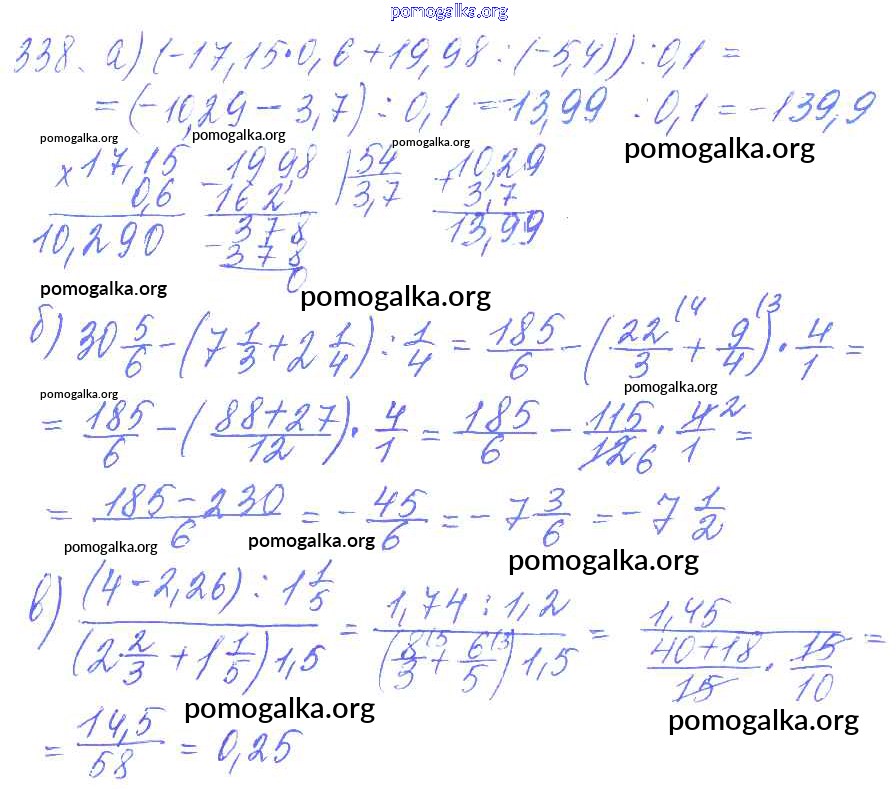 pomogalka.org
338. а) (-17,15·0,6+19,98:(-5,4)):0,1 =
= (-10,29-3,7):0,1 = -13,99 :0,1 = -139,9
pomogalka.org pomogalka.org pomogalka.org pomogalka.org
×17,15 -1998 |54 +10,29
0,6 162 3,7 3,7
10,290 378 13,99
-378
0
pomogalka.org pomogalka.org
б) 30 5/6 - (7 1/3 + 2 1/4) : 1/4 = 185/6 - (22/3 (4 + 9/4 (3) · 4/1 =
pomogalka.org pomogalka.org
= 185/6 - (88+27/12) · 4/1 = 185/6 - 115/12 6 · 4 2/1 =
= 185-230/6 = - 45/6 = - 7 3/6 = - 7 1/2
pomogalka.org pomogalka.org pomogalka.org
в) (4-2,26) : 1 1/5 / (2 · 2/3 + 1 1/5) 1,5 = 1,74 : 1,2 / (8/3 (5 + 6/5 (3) 1,5 = 1,45 / 40+18/15 · 15/10 =
pomogalka.org pomogalka.org
= 14,5/58 = 0,25